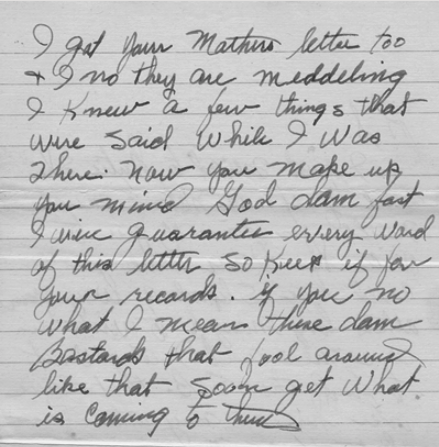 I got your Mothers letter too
+ I no they are meddeling
I Knew a few things that
were said while I was
there. Now you make up
you mind God dam fast
I will guarantee every word
of this letter so Keep if for
your records. if you no
what I mean these dam
Bastards that fool around
like that soon get what
is coming to them